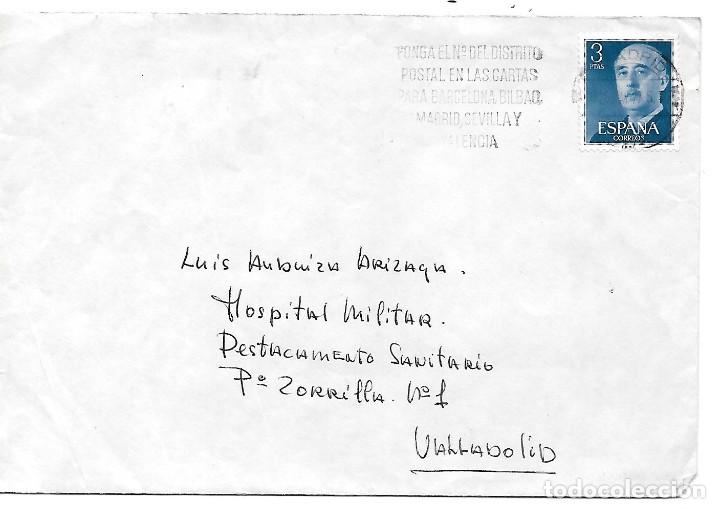 PONGA EL Nº DEL DISTRITO
POSTAL EN LAS CARTAS
PARA BARCELONA, BILBAO,
MADRID, SEVILLA Y
VALENCIA
3
PTAS
ESPAÑA
CORREOS
Luis Arizaga.
Hospital Militar.
Destacamento Sanitario
Pº Zorrilla. Nº 1
Valladolid
todocoleccion